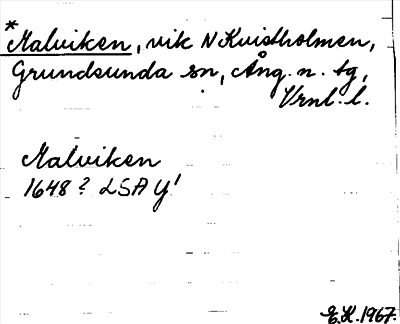 *Malviken, vik N Kvistholmen,
Grundsunda sn, Ång. n. tg,
Vrnl. l.
Malviken
1648? LSA Y'
E.K. 1967.